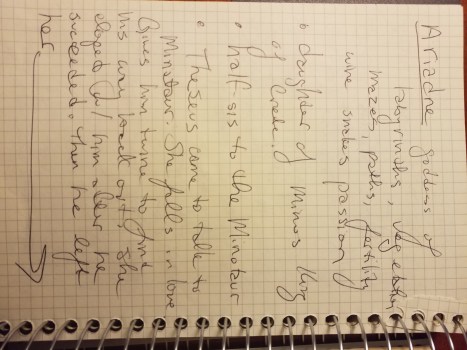 Ariadne goddess of
labyrinths, vegetation
mazes, paths, fertility
wine snakes passion
• daughter of Minos King
of Crete.
• half-sis to the Minotaur
• Theseus came to talk to
Minotaur. She falls in love
Gives him twine to find
his way back out. She
eloped w/ him after he
succeeded. Then he left
her